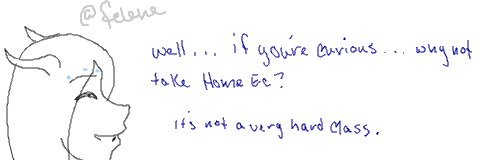 @felene
well... if you're curious... why not
take Home Ec?
it's not a very hard class.